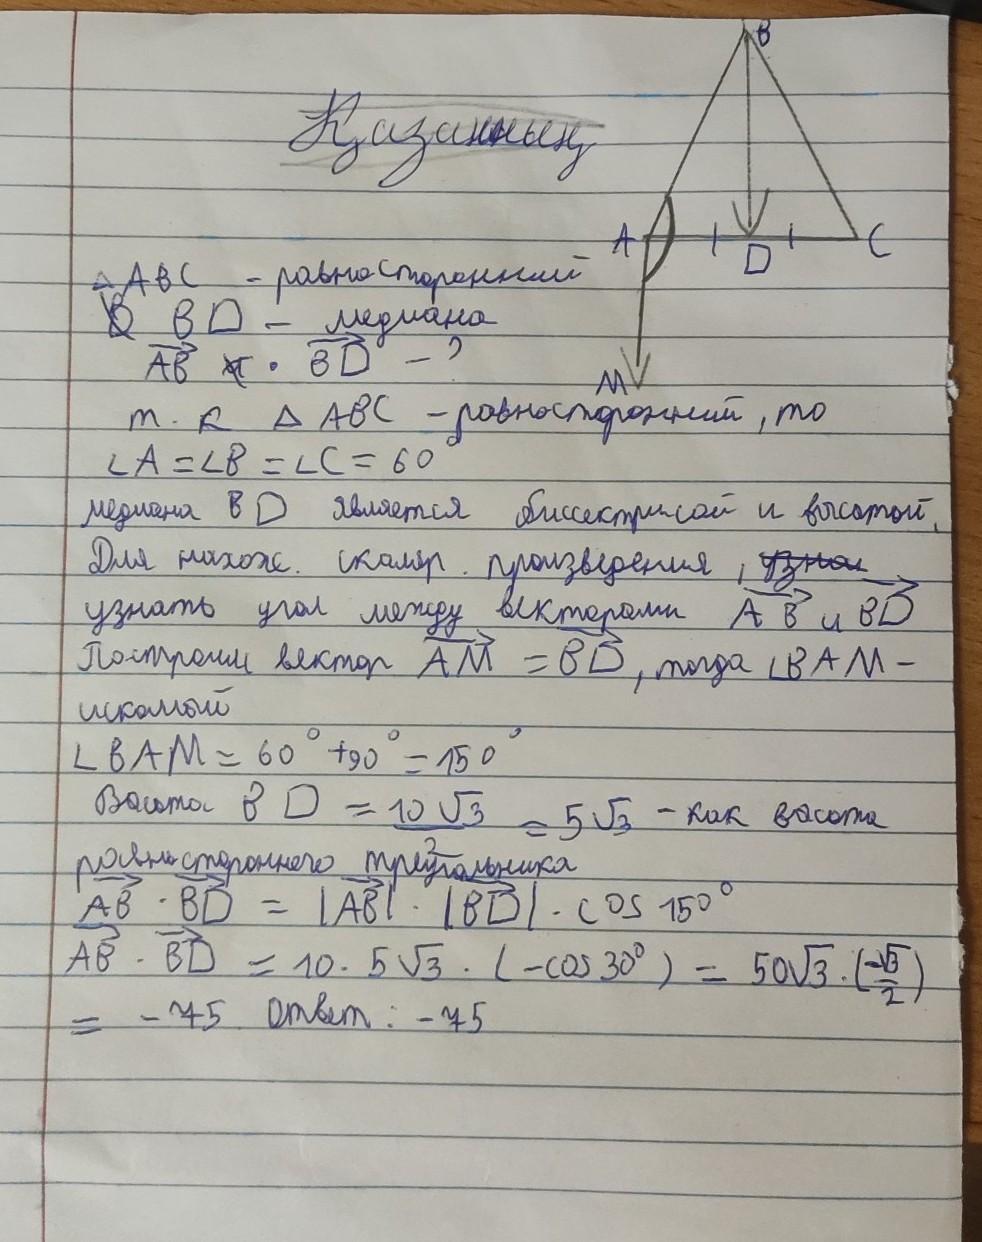 B
Қазанның
A
D
C
△ABC - равносторонний
BD - медиана
AB · BD - ?
M
т. к △ ABC - равносторонний, то
∠A = ∠B = ∠C = 60°
медиана BD является биссектрисой и высотой.
Для нахож. скаляр. произведения,
узнать угол между векторами AB и BD
Построим вектор AM = BD, тогда ∠BAM -
искомый
∠BAM = 60° + 90° = 150°
Высота BD = 10√3/2 = 5√3 - как высота
равностороннего треугольника
AB · BD = |AB| · |BD| · cos 150°
AB · BD = 10 · 5√3 · (-cos30°) = 50√3 · (-√3/2)
= -75 Ответ: -75